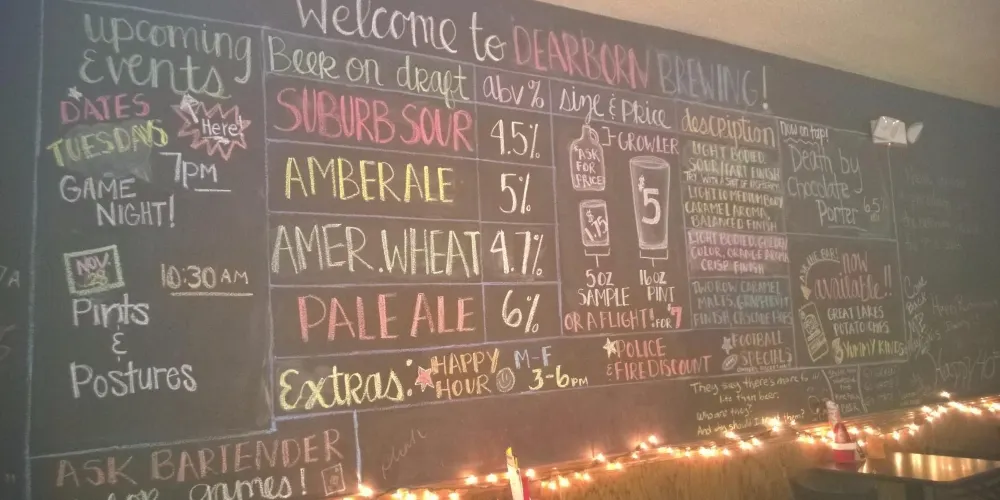 Welcome to DEARBORN BREWING!
upcoming
Events
DATES
TUESDAYS
Here!
7pm
GAME
NIGHT!
NOV.
28
10:30 AM
Pints
&
Postures
ASK BARTENDER
for games!
Beer on draft
abv%
size & Price
description
SUBURB SOUR
4.5%
AMBER ALE
5%
AMER. WHEAT
4.7%
PALE ALE
6%
GROWLER
ASK
FOR
PRICE!
$5
$1.75
5oz
SAMPLE
16oz
PINT
OR A FLIGHT! FOR $7
LIGHT BODIED,
SOUR/TART FINISH
LIGHT TO MEDIUM BODY
CARAMEL AROMA,
BALANCED FINISH
LIGHT BODIED, GOLDEN
COLOR, ORANGE AROMA
CRISP FINISH
TWO ROW CARAMEL
MALTS, GRAPEFRUIT
FINISH, CASCADE HOPS
Now on tap!
Death by
Chocolate
Porter
6.5
now
available!!
GREAT LAKES
POTATO CHIPS
3 YUMMY KINDS
Extras:
HAPPY
HOUR
M-F
3-6pm
POLICE
& FIRE DISCOUNT
FOOTBALL
SPECIALS
They say there's more to
life than beer.
Who are they?
And why should I trust them?